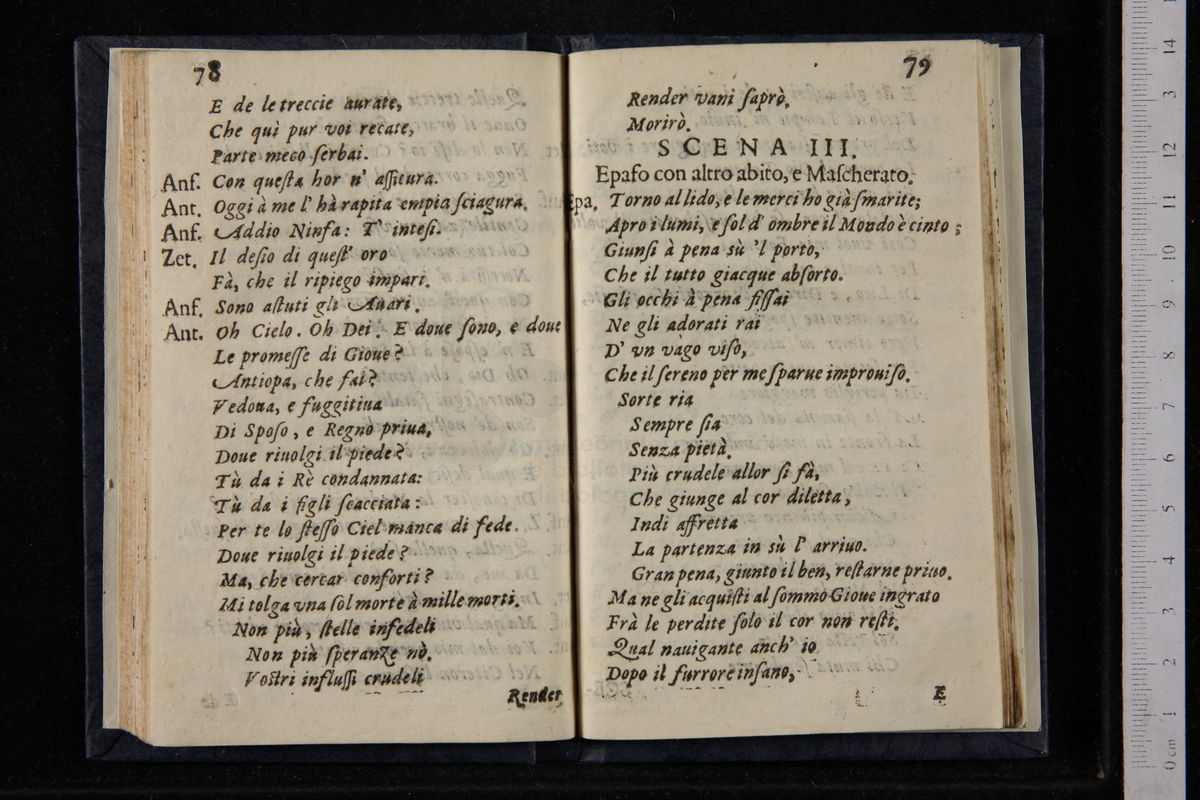 78
E de le treccie aurate,
Che quì pur voi recate,
Parte meco ſerbai.
Anf. Con queſta hor n' aſſicura.
Ant. Oggi à me l' hà rapita empia ſciagura.
Anf. Addio Ninfa: T' inteſi.
Zet. Il deſio di queſt' oro
Fà, che il ripiego impari.
Anf. Sono aſtuti gli Auari.
Ant. Oh Cielo. Oh Dei! E doue ſono, e doue
Le promeſſe di Gioue?
Antiopa, che fai?
Vedoua, e fuggitiua
Di Spoſo, e Regno priua,
Doue riuolgi il piede?
Tù da i Rè condannata:
Tù da i figli ſcacciata:
Per te lo ſteſſo Ciel manca di fede.
Doue riuolgi il piede?
Ma, che cercar conforti?
Mi tolga vna ſol morte à mille morti.
Non più, ſtelle infedeli
Non più ſperanze nò.
Voſtri influſſi crudeli
Render
79
Render vani ſaprò,
Morirò.
SCENA III.
Epafo con altro abito, e Maſcherato.
Epa. Torno al lido, e le merci ho già ſmarite;
Apro i lumi, e ſol d' ombre il Mondo è cinto;
Giunſi à pena sù 'l porto,
Che il tutto giacque abſorto.
Gli occhi à pena fiſſai
Ne gli adorati rai
D' vn vago viſo,
Che il ſereno per me ſparue improuiſo.
Sorte ria
Sempre ſia
Senza pietà.
Più crudele allor ſi fà,
Che giunge al cor diletta,
Indi affretta
La partenza in sù l' arriuo.
Gran pena, giunto il ben, reſtarne priuo.
Ma ne gli acquiſti al ſommo Gioue ingrato
Frà le perdite ſolo il cor non reſti.
Qual nauigante anch' io
Dopo il furrore inſano,
E